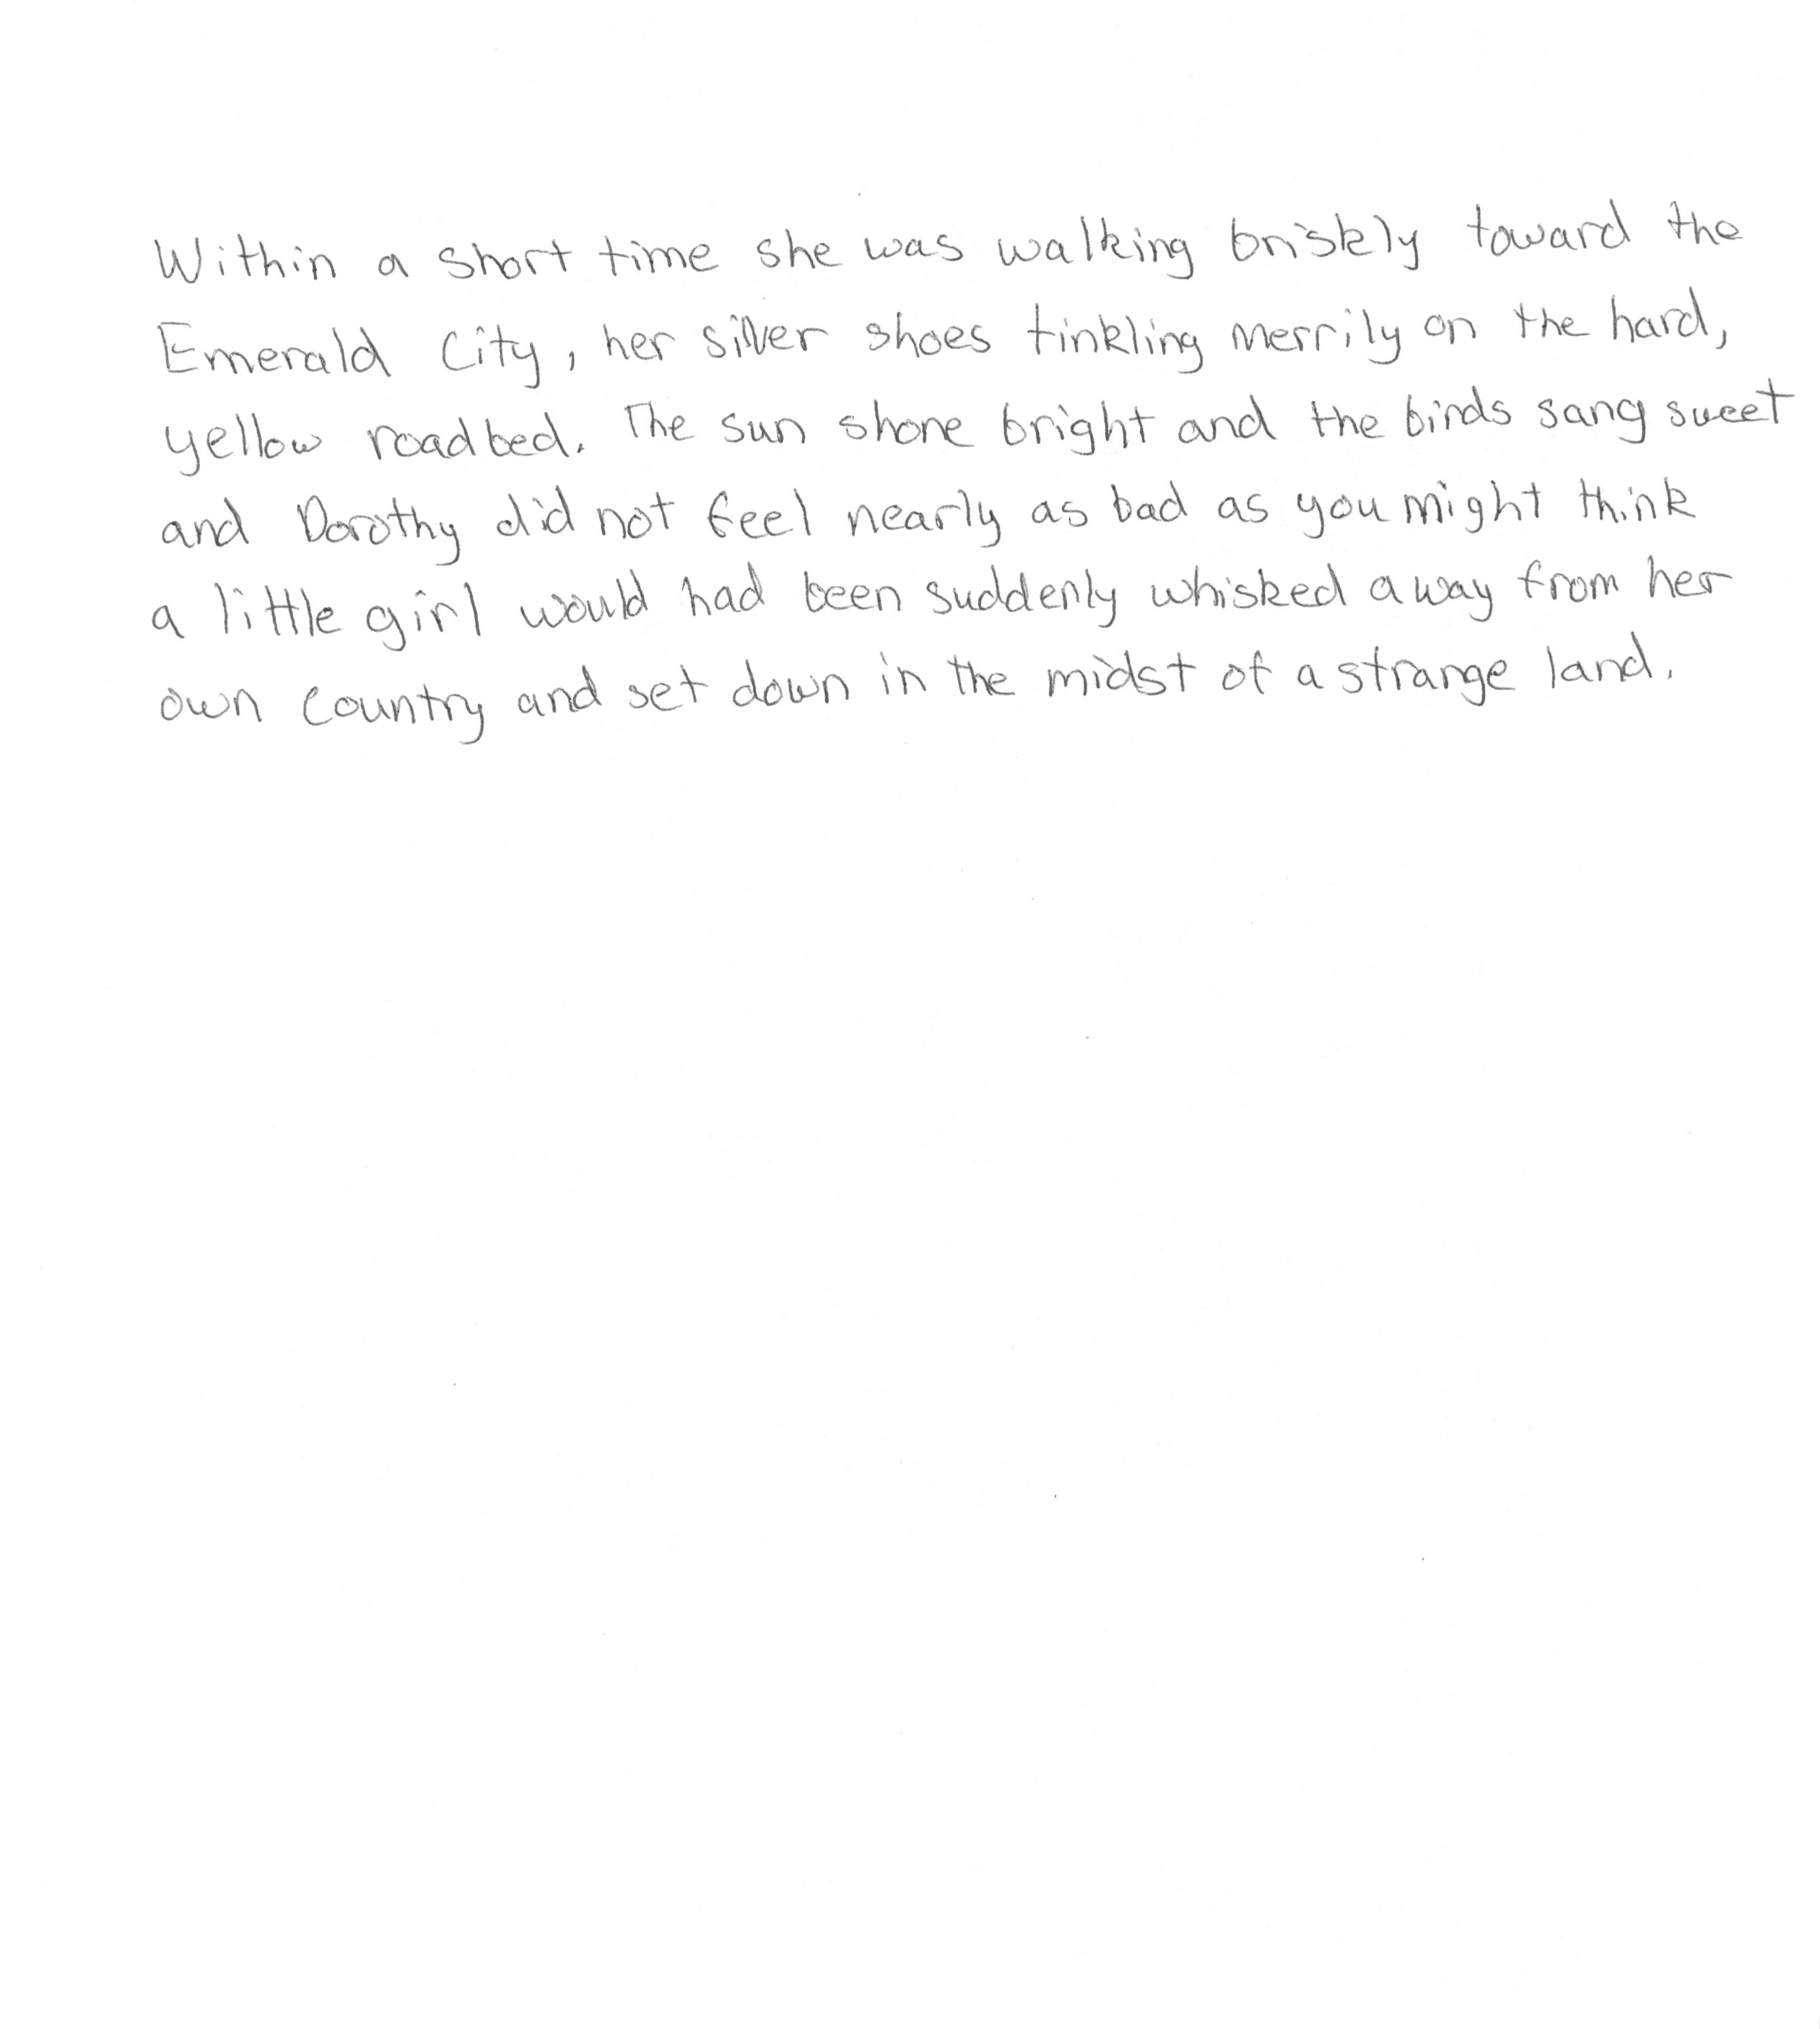 Within a short time she was walking briskly toward the
Emerald City, her silver shoes tinkling merrily on the hard,
yellow roadbed. The sun shone bright and the birds sang sweet
and Dorothy did not feel nearly as bad as you might think
a little girl would had been suddenly whisked away from her
own country and set down in the midst of a strange land.